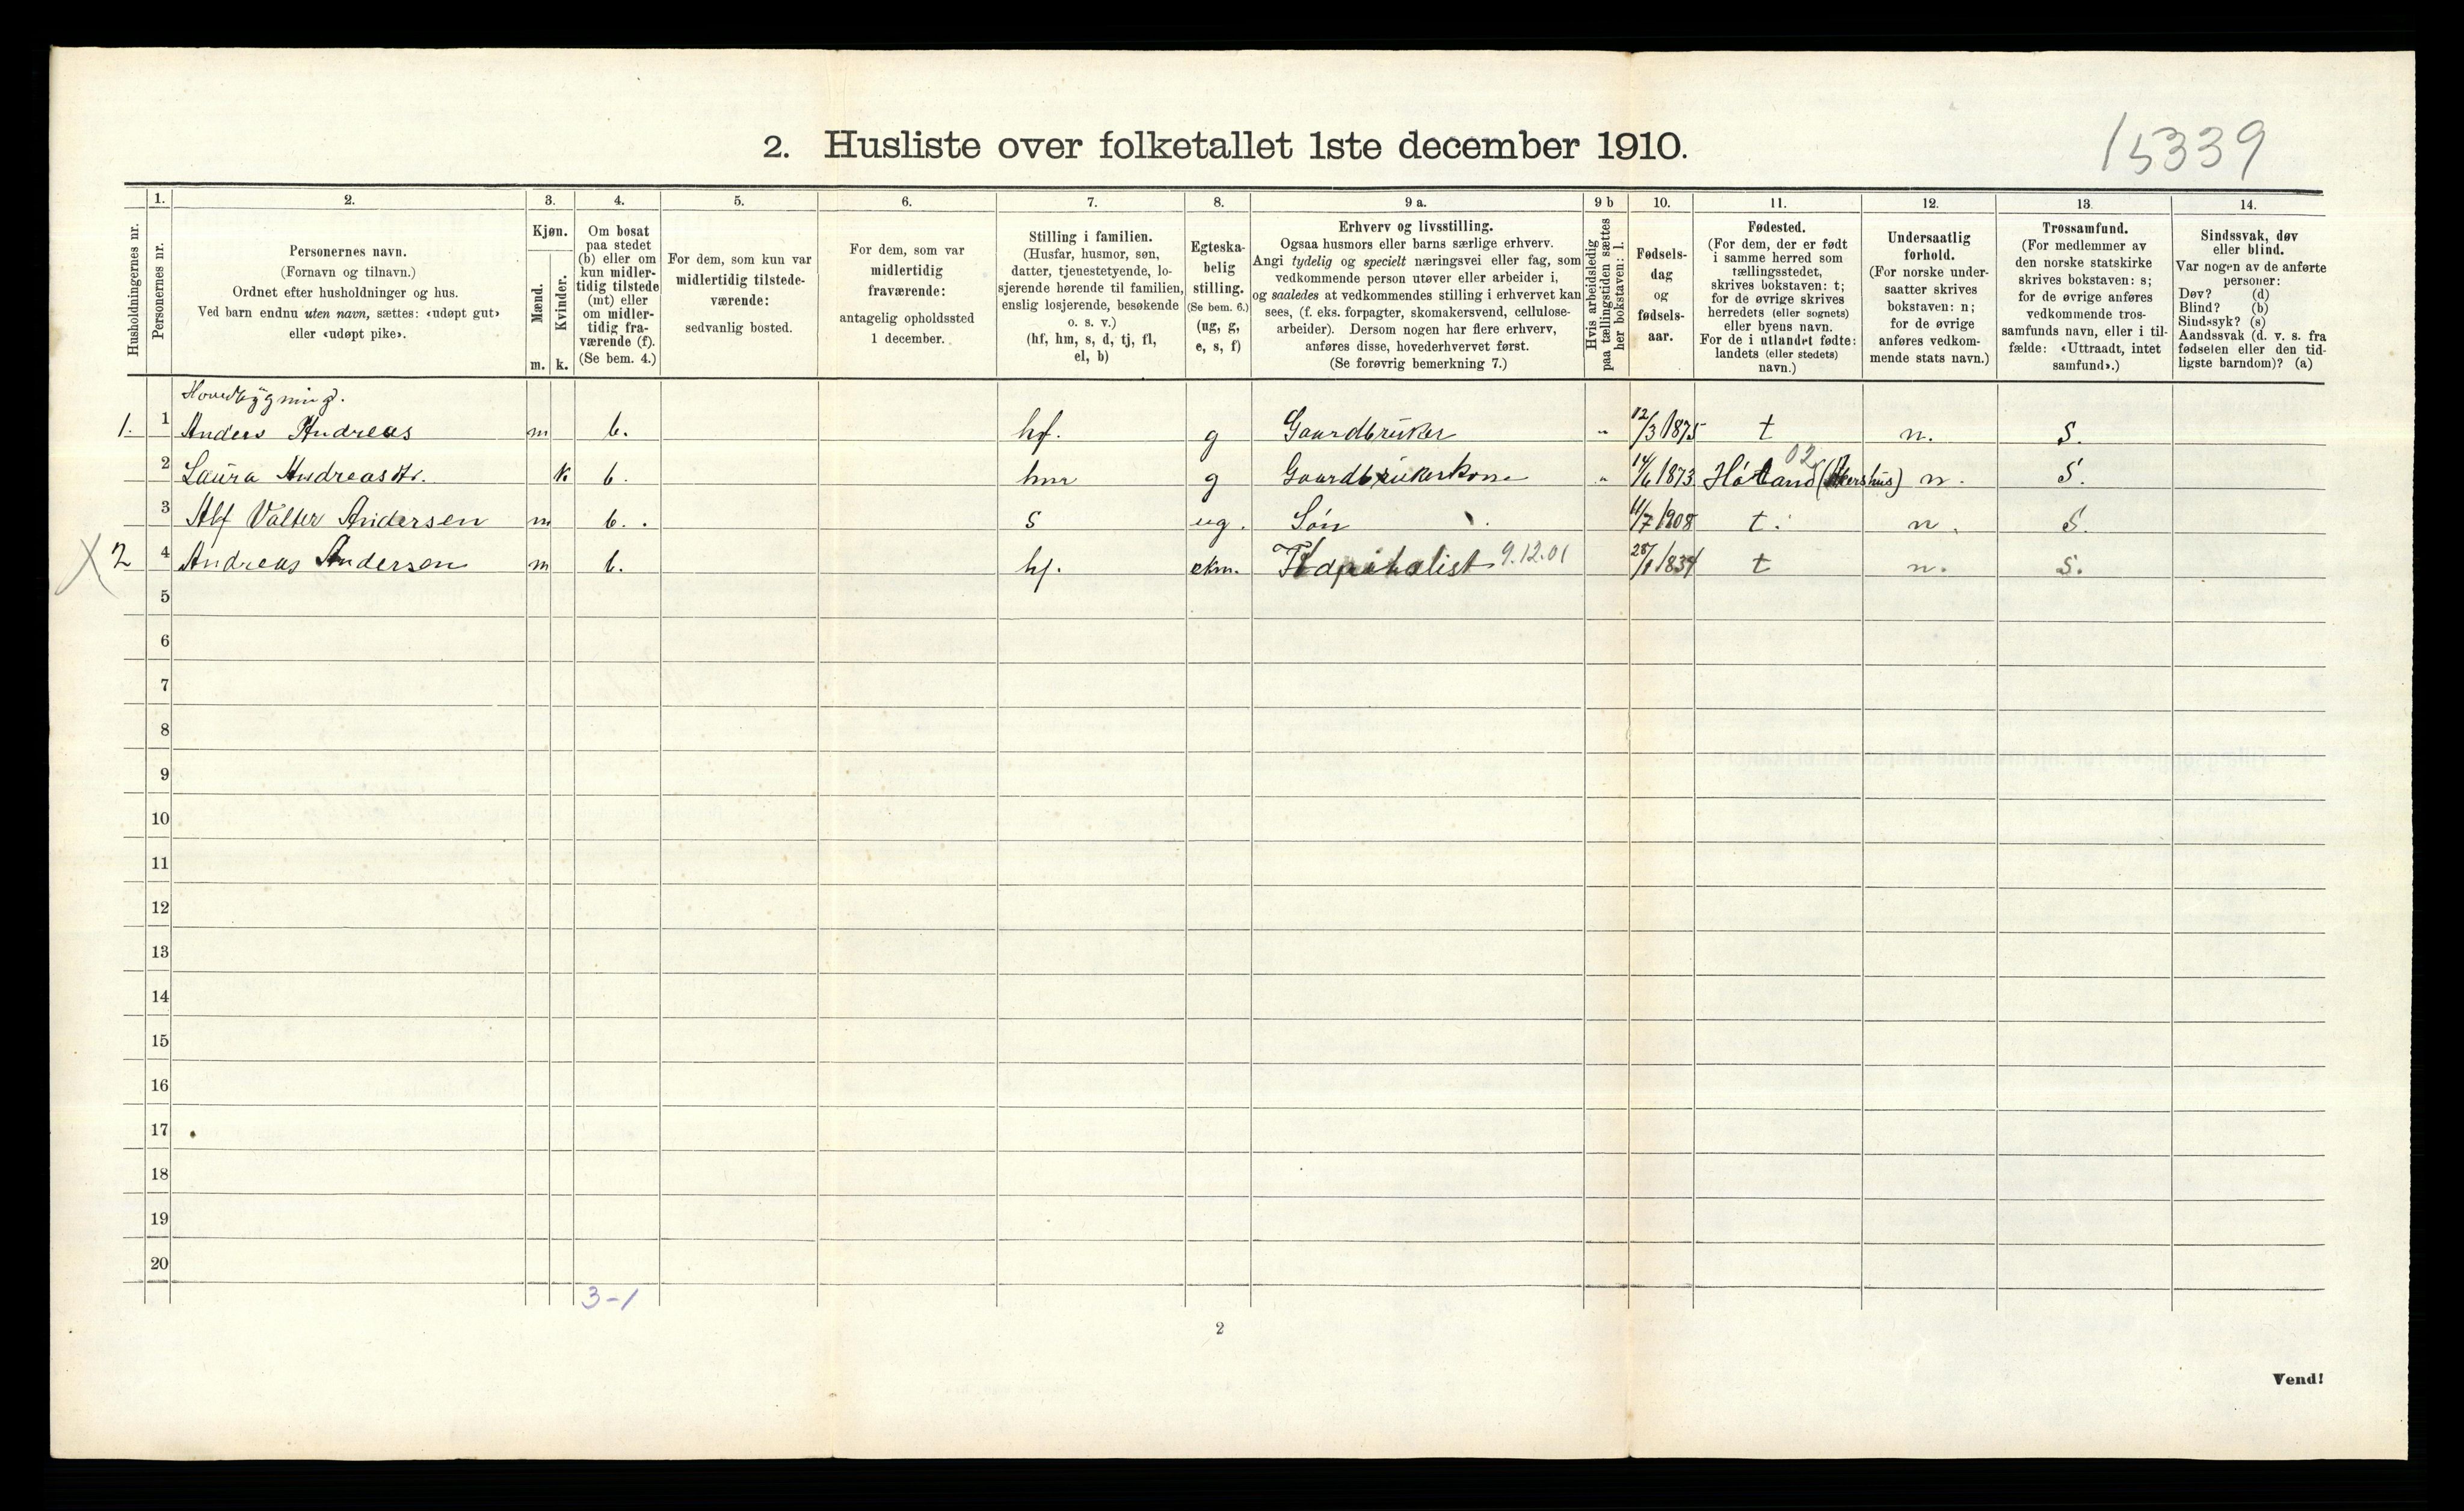 15339
2. Husliste over folketallet 1ste december 1910.
Husholdningernes nr.
1.
Personernes nr.
2.
Personernes navn.
(Fornavn og tilnavn.)
Ordnet efter husholdninger og hus.
Ved barn endnu uten navn, sættes: «udøpt gut»
eller «udøpt pike».
3.
Kjøn.
Mænd.
Kvinder.
m. k.
4.
Om bosat
paa stedet
(b) eller om
kun midler-
tidig tilstede
(mt) eller
om midler-
tidig fra-
værende (f).
(Se bem. 4.)
5.
For dem, som kun var
midlertidig tilstede-
værende:
sedvanlig bosted.
6.
For dem, som var
midlertidig
fraværende:
antagelig opholdssted
1 december.
7.
Stilling i familien.
(Husfar, husmor, søn,
datter, tjenestetyende, lo-
sjerende hørende til familien,
enslig losjerende, besøkende
o. s. v.)
(hf, hm, s, d, tj, fl,
el, b)
8.
Egteska-
belig
stilling.
(Se bem. 6.)
(ug, g,
e, s, f)
9 a.
Erhverv og livsstilling.
Ogsaa husmors eller barns særlige erhverv.
Angi tydelig og specielt næringsvei eller fag, som
vedkommende person utøver eller arbeider i,
og saaledes at vedkommendes stilling i erhvervet kan
sees, (f. eks. forpagter, skomakersvend, cellulose-
arbeider). Dersom nogen har flere erhverv,
anføres disse, hovederhvervet først.
(Se forøvrig bemerkning 7.)
9 b
Hvis arbeidsledig
paa tællingstiden sættes
her bokstaven: l.
10.
Fødsels-
dag
og
fødsels-
aar.
11.
Fødested.
(For dem, der er født
i samme herred som
tællingsstedet,
skrives bokstaven: t;
for de øvrige skrives
herredets (eller sognets)
eller byens navn.
For de i utlandet fødte:
landets (eller stedets)
navn.)
12.
Undersaatlig
forhold.
(For norske under-
saatter skrives
bokstaven: n;
for de øvrige
anføres vedkom-
mende stats navn.)
13.
Trossamfund.
(For medlemmer av
den norske statskirke
skrives bokstaven: s;
for de øvrige anføres
vedkommende tros-
samfunds navn, eller i til-
fælde: «Uttraadt, intet
samfund».)
14.
Sindssvak, døv
eller blind.
Var nogen av de anførte
personer:
Døv? (d)
Blind? (b)
Sindssyk? (s)
Aandssvak (d. v. s. fra
fødselen eller den tid-
ligste barndom)? (a)
Hovedbygning.
1. 1 Anders Andreas m b. hf. g Gaardbruker " 12/3 1875 t n. S.
02
2 Laura Andreas k b. hm g Gaardbrukerkone " 14/6 1873 Høland (Akershus) n. S.
3 Alf Valter Andersen m b. s ug. Søn 11/7 1908 t. n. S.
X 2 4 Andreas Andersen m b. hf. ekm. 9.12.01 t n. S.
5
6
7
8
9
10
11
12
13
14
15
16
17
18
19
20
3-1
2
Vend!